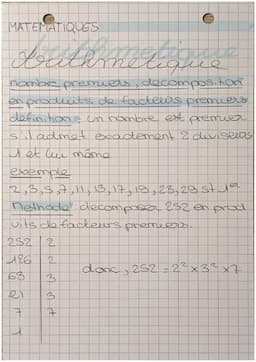 MATEMATIQUES
Arithmetique
nombre premiers, decomposition
en produits de facteurs premiers
definition: Un nombre est premier
s'il admet exactement 2 diviseurs
1 et lui même
exemple
2, 3, 5, 7, 11, 13, 17, 19, 23, 29 st 1er
Methode: decomposer 252 en prod
uits de facteurs premiers.
252 | 2
126 | 2
63 | 3
21 | 3
7 | 7
1
donc, 252 = 2² × 3² × 7